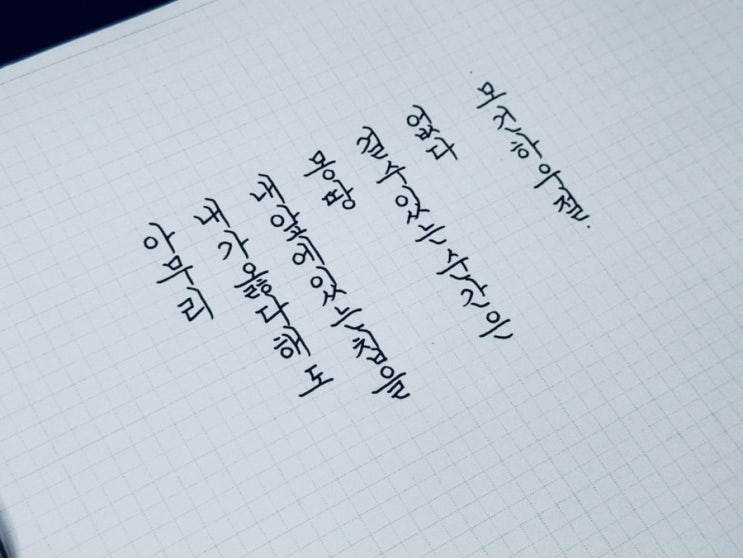 아무리
내가 옳다 해도
내 앞에 있는 칩을
몽땅
걸 수 있는 순간은
없다
모건 하우절.